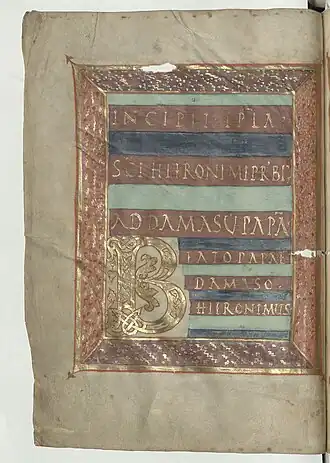 INCIPIT EPLA
SCI HIERONIMI PRBI
AD DAMASU PAPA
BEATO PAPAE
DAMASO
HIERONIMUS